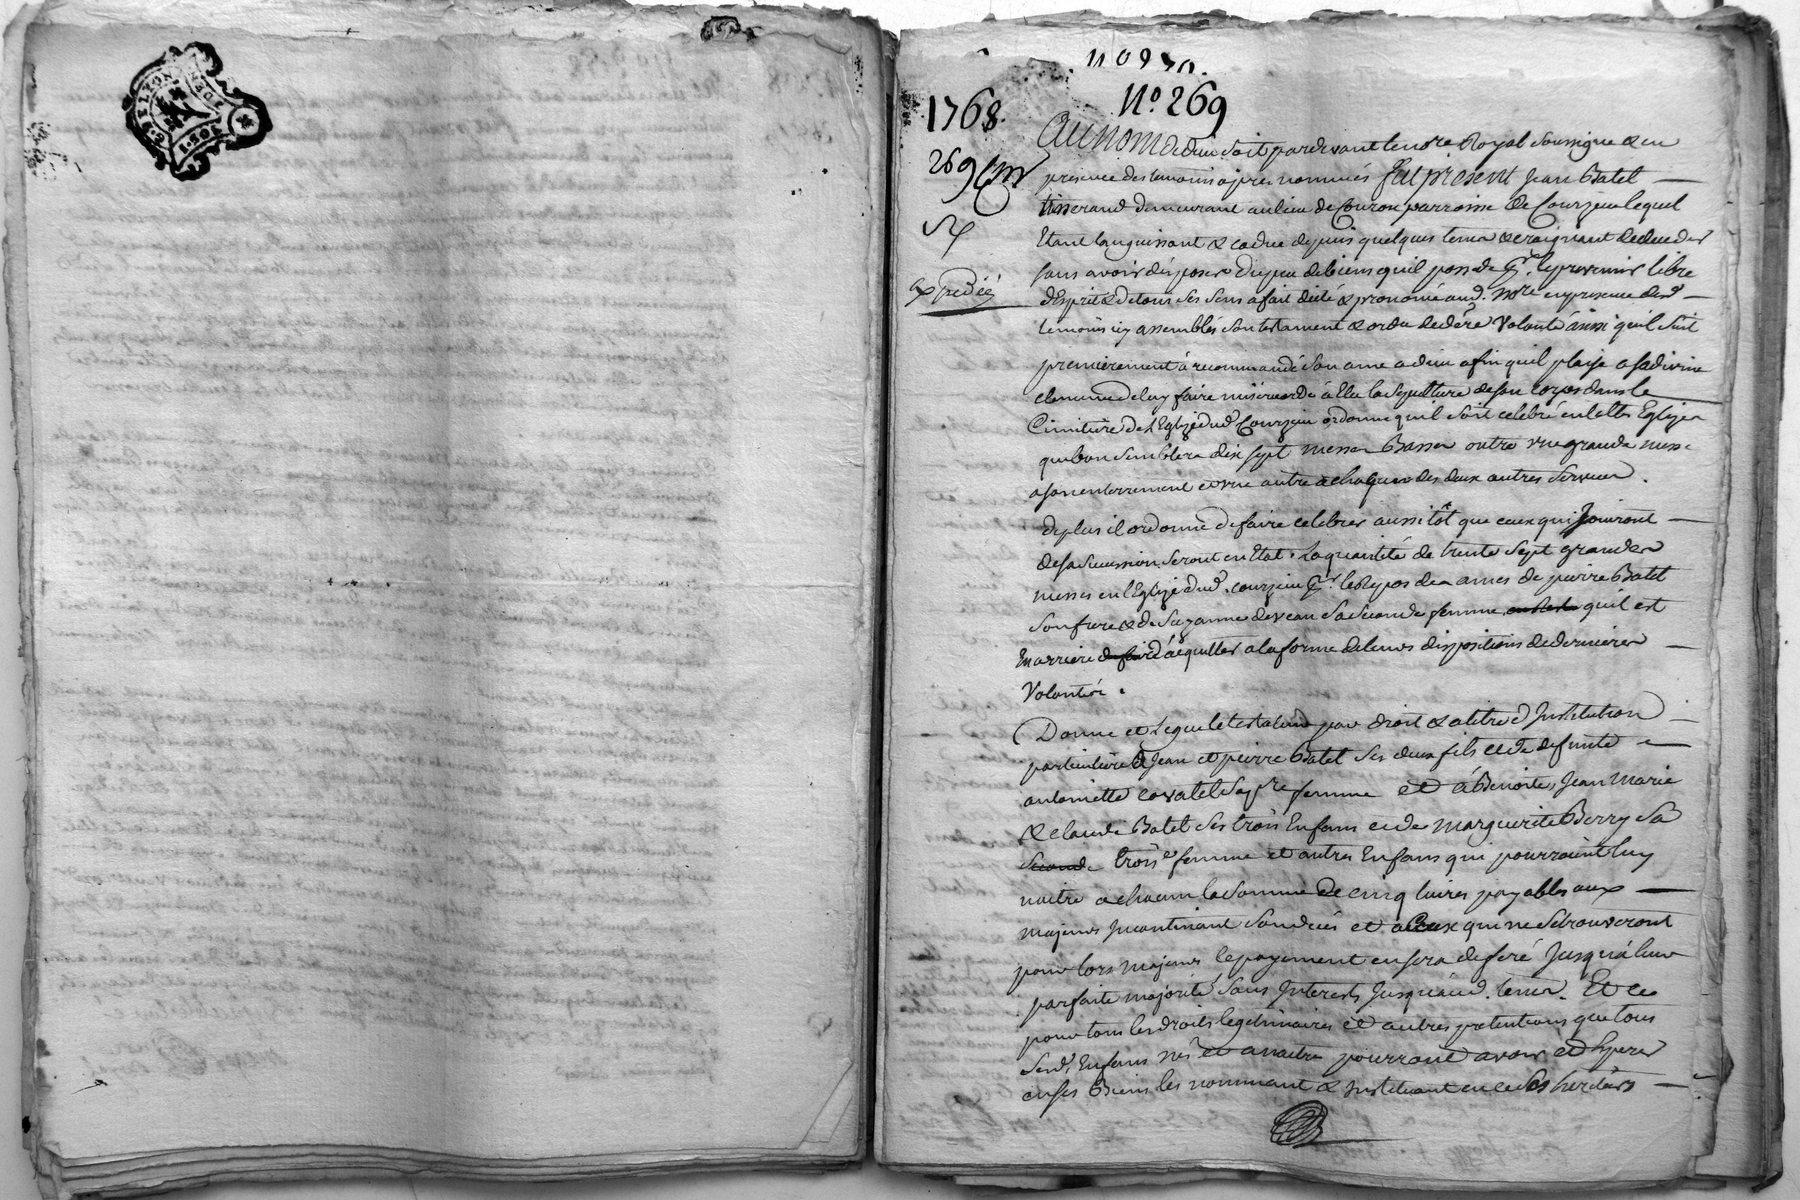 G. DE LYON
1·SOL
N.º 270.
N.º 269
1768.
269
Expedié
Au nom de dieu soit pardevant le no.re Royal soussigné & en
presence des temoins apres nommés fut present Jean Batel
tisserand demeurant au lieu de parroisse de Courzieu lequel
Etant languissant & caduc depuis quelques tems & craignant de deceder
sans avoir disposer du peu de biens qu'il possede p.r le prevenir libre
d'Esprit & de tous ses sens a fait dicté & prononcé aud. no.re en presence desd.
temoins icy assemblés son testament & ordce. de dre. Volonté ainsi quil suit
premierement à recommandé son ame a dieu afin quil plaise a sa divine
clemence de luy faire misericorde à Elu la sepulture de son corps dans le
Cimitiere de l'Eglize dud. Courzieu ordonne quil soit celebré en telles Eglizes
que bon semblera dix sept messes Basses outre une grande messe
a son enterrement et une autre à chaqu'un des deux autres services.
deplus il ordonne de faire celebrer aussitôt que ceux qui Jouiront
de sa succession seront en Etat. la quantité de trente sept grandes
messes en l'Eglize dud. courzieu p.r le Repos des ames de pierre Batel
son frere & de Suzanne deveau sa seconde femme quil est
En arriere d'acquitter a la forme de leurs dispositions de dernieres
Volontés.
Donne et Legue le testateur par droit & a titre d'Institution
particuliere à Jean et pierre Batel ses deux fils et de defunte
antoinette covatel sa pre. femme et à Benoite, Jean Marie
& claude Batel ses trois Enfans et de Marguerite Berry sa
seconde trois.e femme et autres Enfans qui pourroient luy
naitre a chacun la somme de cinq livres payables aux
majeurs Incontinant son deces et a Ceux qui ne se trouveront
pour lors majeurs le payement en sera deferé Jusqu'à leur
parfaite majorité sans Interests Jusqu'aud. tems. Et ce
pour tous les droits legitimaires et autres pretentions que tous
sesd. Enfans nés et a naitre pourront avoir et Esperer
en ses Biens les nommant & instituant en ce ses heritiers